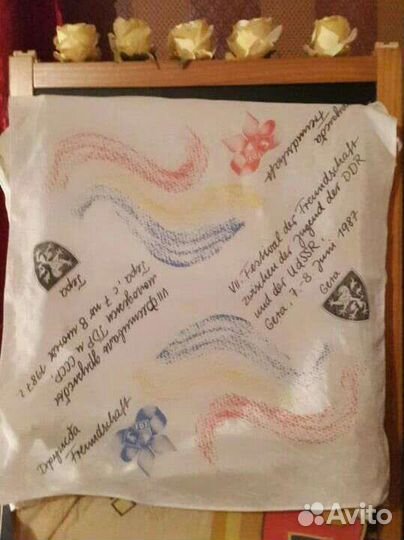 Дружба
Freundschaft
VII. Festival der Freundschaft
zwischen der Jugend der DDR
und der UdSSR.
Gera. 7.-8. Juni 1987
Gera
VII Фестиваль дружбы
молодёжи ГДР и СССР.
Гера. с 7 по 8 июня 1987 г.
Гера
Дружба
Freundschaft
Avito